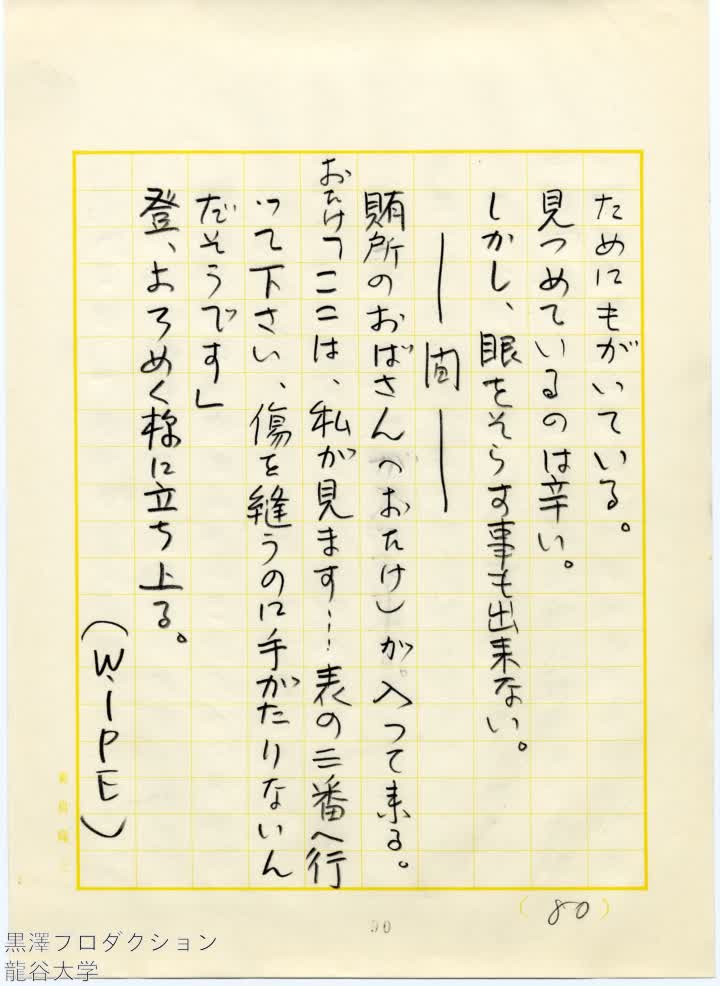 ためにもがいている。
見つめているのは辛い。
しかし、眼をそらす事も出来ない。
――間――
賄所のおばさん(おたけ)が入って来る。
おたけ「ここは、私が見ます…表の二番へ行
って下さい、傷を縫うのに手がたりないん
だそうです」
登、よろめく様に立ち上る。
(W・IPE)
(80)
90
黒澤プロダクション
龍谷大学